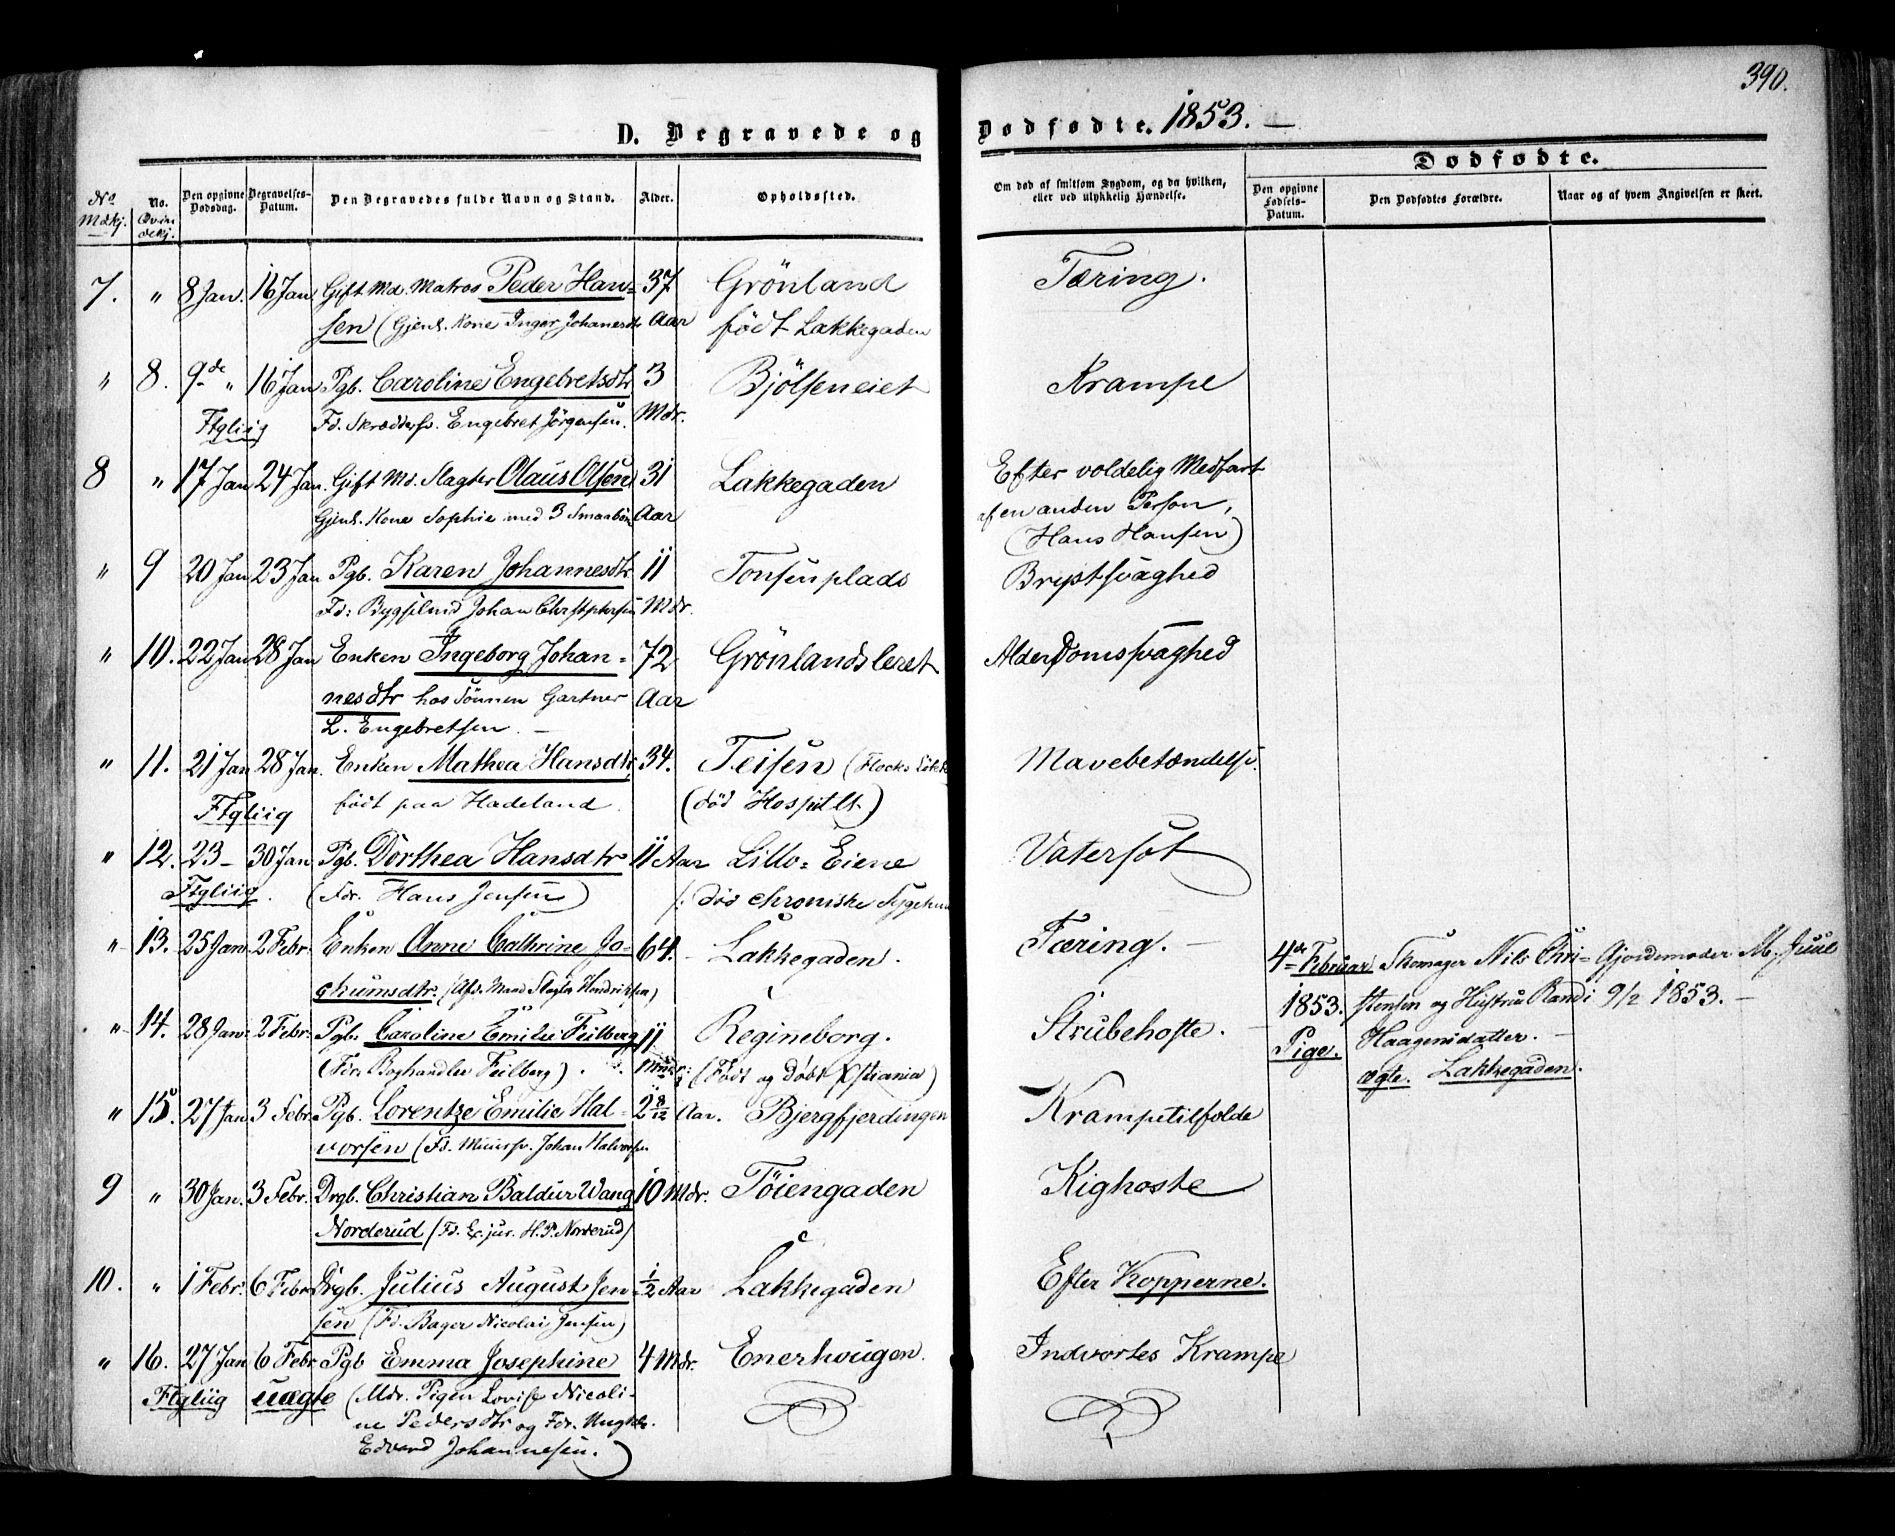 390.
D. Begravede og Dødfødte. 1853. —
Dødfødte.
No Mdkj.
No. Qvindekj.
Den opgivne Dødsdag.
Begravelses-Datum.
Den Begravedes fulde Navn og Stand.
Alder.
Opholdssted.
Om død af smitsom Sygdom, og da hvilken, eller ved ulykkelig Hændelse.
Den opgivne Fødsels-Datum.
Den Dødfødtes Forældre.
Naar og af hvem Angivelsen er skeet.
7. " 8 Jan. 16 Jan Gift Md. Matros Peder Han= 37 Grönland Tæring.
sen (Gjenl. Kone Inger Johanesdtr Aar födt Lakkegaden
" 8. 9de " 16 Jan Pgb. Caroline Engebretsdtr 3 Bjölseneiet Krampe
Ftgliig Fd. Skræddersv. Engebret Jörgensen. Mdr.
8 " 17 Jan 24 Jan. Gift Md. Slagter Olaus Olsen 31 Lakkegaden Efter voldelig Medfart
Gjenl. Kone Sophie med 3 Smaabörn Aar af en anden Person,
(Hans Hansen)
" 9 20 Jan 23 Jan Pgb. Karen Johannesdtr 11 Tonsenplads Brystsvaghed
Fd: Bygselmd Johan Christophersen Mdr.
" 10. 22 Jan 28 Jan Enken Ingeborg Johan= 72 Grönlandsleret Alderdomssvaghed
nesdtr hos Sönnen Gartner Aar
L. Engebretsen. —
" 11. 21 Jan 28 Jan. Enken Mathea Hansdtr 34. Teisen (Flocks Lökke Mavebetændelse.
Ftgliig födt paa Hadeland. (död Hospitlt.)
" 12. 23 — 30 Jan. Pgb. Dorthea Hansdtr 11 Aar Lillo=Eiene Vatersot
Ftgliig. (Fdr. Hans Jensen) (: död chroniske Sygehus
" 13. 25 Jan. 2 Febr. Enken Anne Cathrine Jo= 64. Lakkegaden. Tæring. —
chumsdtr. (Afd. Mand Slagter Hendriksen)
4de Februar Skomager Nils Chri= Gjordemoder M. Juul
1853. stensen og Hustru Randi 9/2 1853. —
Pige. Haagensdatter. —
ægte. Lakkegaden.
" 14. 28 Jan. 2 Febr. Pgb. Caroline Emilie Feilberg 11 Regineborg. Strubehoste. —
(Fdr. Boghandler Feilberg). Mdr. (Födt og Döbt Xstiania)
" 15. 27 Jan 3 Febr. Pgb. Lorentze Emilie Hal= 2 8/12 Aar. Bjergfjerdingen Krampetilfælde
vorsen (Fd. Muursv. Johan Halvorsen
9 " 30 Jan. 3 Febr. Drgb. Christian Baldur Wang 10 Mdr. Töiengaden Kighoste
Norderud (Fd. Ex. jur. H. P. Norderud)
10. " 1 Febr. 6 Febr. Drgb. Julius August Jen= 1/2 Aar Lakkegaden Efter Kopperne.
sen (Fd. Bager Nicolai Jensen)
" 16. 27 Jan 6 Febr. Pgb Emma Josephine 4 Mdr. Enerhougen. Indvortes Krampe
Ftgliig uægte (Mdr. Pigen Lovise Nicoli-
ne Pedersdtr og Fdr. Ungkl.
Edvard Johannesen.)